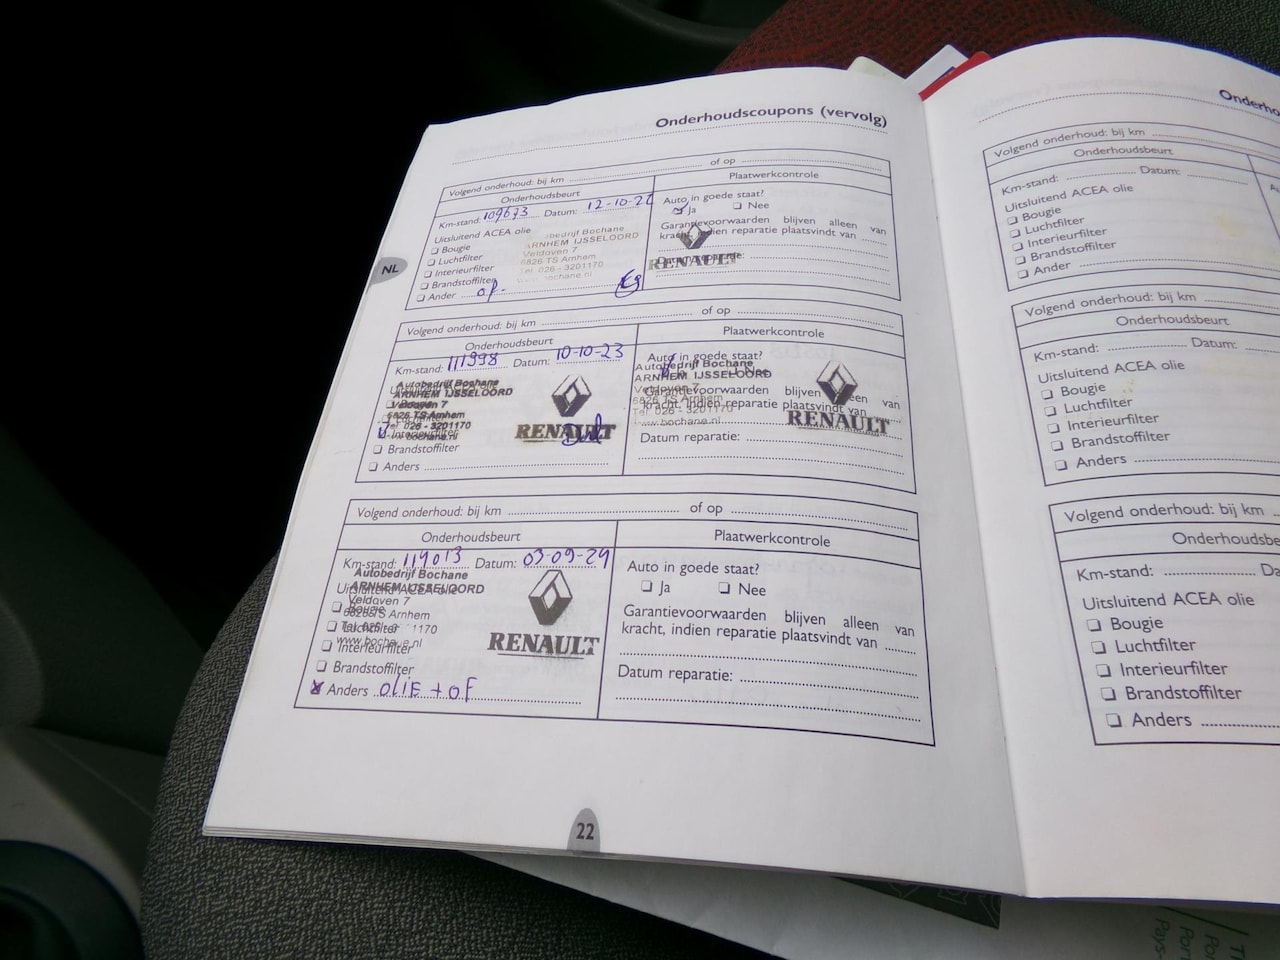 Onderhoudscoupons (vervolg)
Volgend onderhoud: bij km of op
Onderhoudsbeurt Plaatwerkcontrole
Km-stand: 109673 Datum: 12-10-2
Auto in goede staat?
Ja Nee
Uitsluitend ACEA olie
Bougie
Luchtfilter
Interieurfilter
Brandstoffilter
Ander o.f.
Autobedrijf Bochane
ARNHEM IJSSELOORD
Veldoven 7
6826 TS Arnhem
Tel. 026 - 3201170
www.bochane.nl
Garantievoorwaarden blijven alleen van
kracht, indien reparatie plaatsvindt van
RENAULT
NL
Volgend onderhoud: bij km of op
Onderhoudsbeurt Plaatwerkcontrole
Km-stand: 111998 Datum: 10-10-23
Auto in goede staat?
Autobedrijf Bochane
ARNHEM IJSSELOORD
Veldoven 7
6826 TS Arnhem
Tel. 026 - 3201170
www.bochane.nl
RENAULT
Interieurfilter
Brandstoffilter
Anders
Autobedrijf Bochane
ARNHEM IJSSELOORD
Veldoven 7
6826 TS Arnhem
Tel. 026 - 3201170
www.bochane.nl
RENAULT
Garantievoorwaarden blijven alleen van
kracht, indien reparatie plaatsvindt van
Datum reparatie:
Volgend onderhoud: bij km of op
Onderhoudsbeurt Plaatwerkcontrole
Km-stand: 119013 Datum: 03-09-24
Autobedrijf Bochane
ARNHEM IJSSELOORD
Veldoven 7
6826 TS Arnhem
Tel. 026 1170
www.bochane.nl
RENAULT
Uitsluitend ACEA olie
Bougie
Luchtfilter
Interieurfilter
Brandstoffilter
Anders OLIE + OF
Auto in goede staat?
Ja Nee
Garantievoorwaarden blijven alleen van
kracht, indien reparatie plaatsvindt van
Datum reparatie:
22
Onderho
Volgend onderhoud: bij km
Onderhoudsbeurt
Km-stand: Datum:
Uitsluitend ACEA olie
Bougie
Luchtfilter
Interieurfilter
Brandstoffilter
Ander
Volgend onderhoud: bij km
Onderhoudsbeurt
Km-stand: Datum:
Uitsluitend ACEA olie
Bougie
Luchtfilter
Interieurfilter
Brandstoffilter
Anders
Volgend onderhoud: bij km
Onderhoudsbe
Km-stand: Da
Uitsluitend ACEA olie
Bougie
Luchtfilter
Interieurfilter
Brandstoffilter
Anders